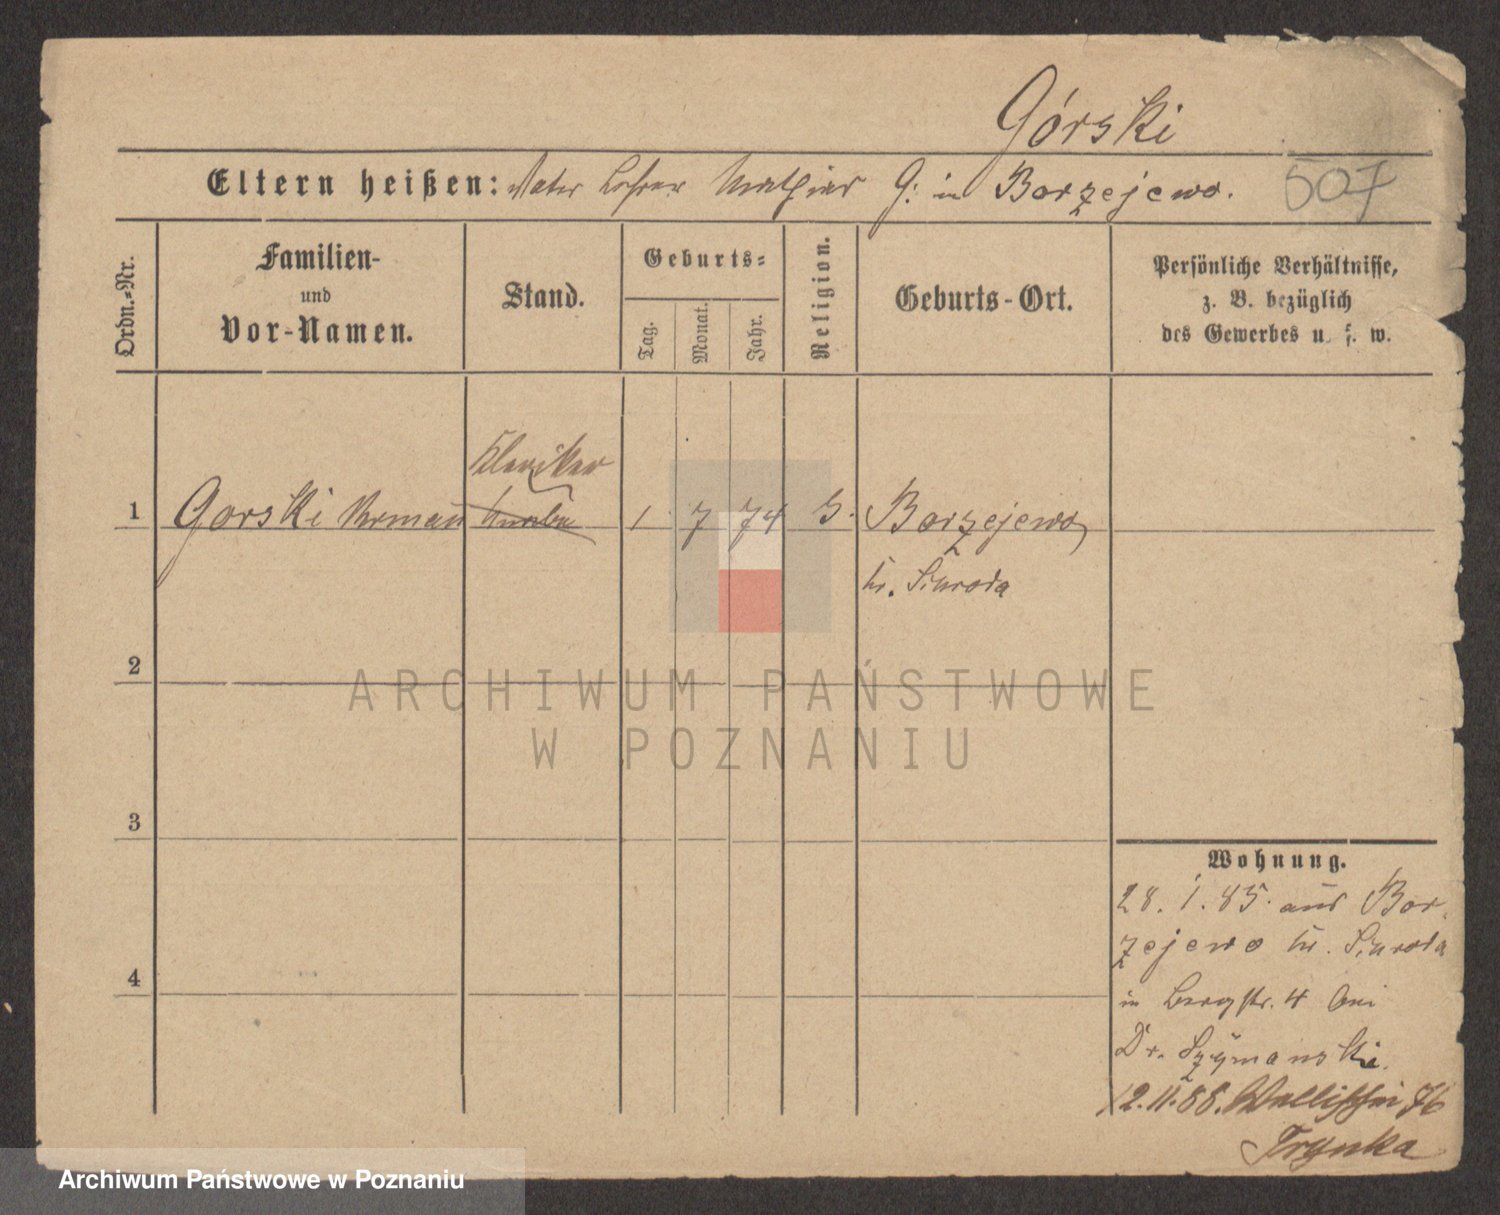 Górski
Eltern heißen: Vater Lehrer Mathias G. in Borzejewo.
507
Ordn.-Nr.
Familien-
und
Vor-Namen.
Stand.
Geburts-
Tag.
Monat.
Jahr.
Religion.
Geburts-Ort.
Persönliche Verhältnisse,
z. B. bezüglich
des Gewerbes u. s. w.
Kleriker
1 Gorski Roman Knabe 1 7 74 Borzejewo
Kr. Schroda
2
ARCHIWUM PAŃSTWOWE
W POZNANIU
3
4
Wohnung.
28. 1. 85. aus Bor-
zejewo Kr. Schroda
in Bergstr. 4 bei
Dr. Szymanski.
12.11.88. Wallischei 76
Trynka
Archiwum Państwowe w Poznaniu